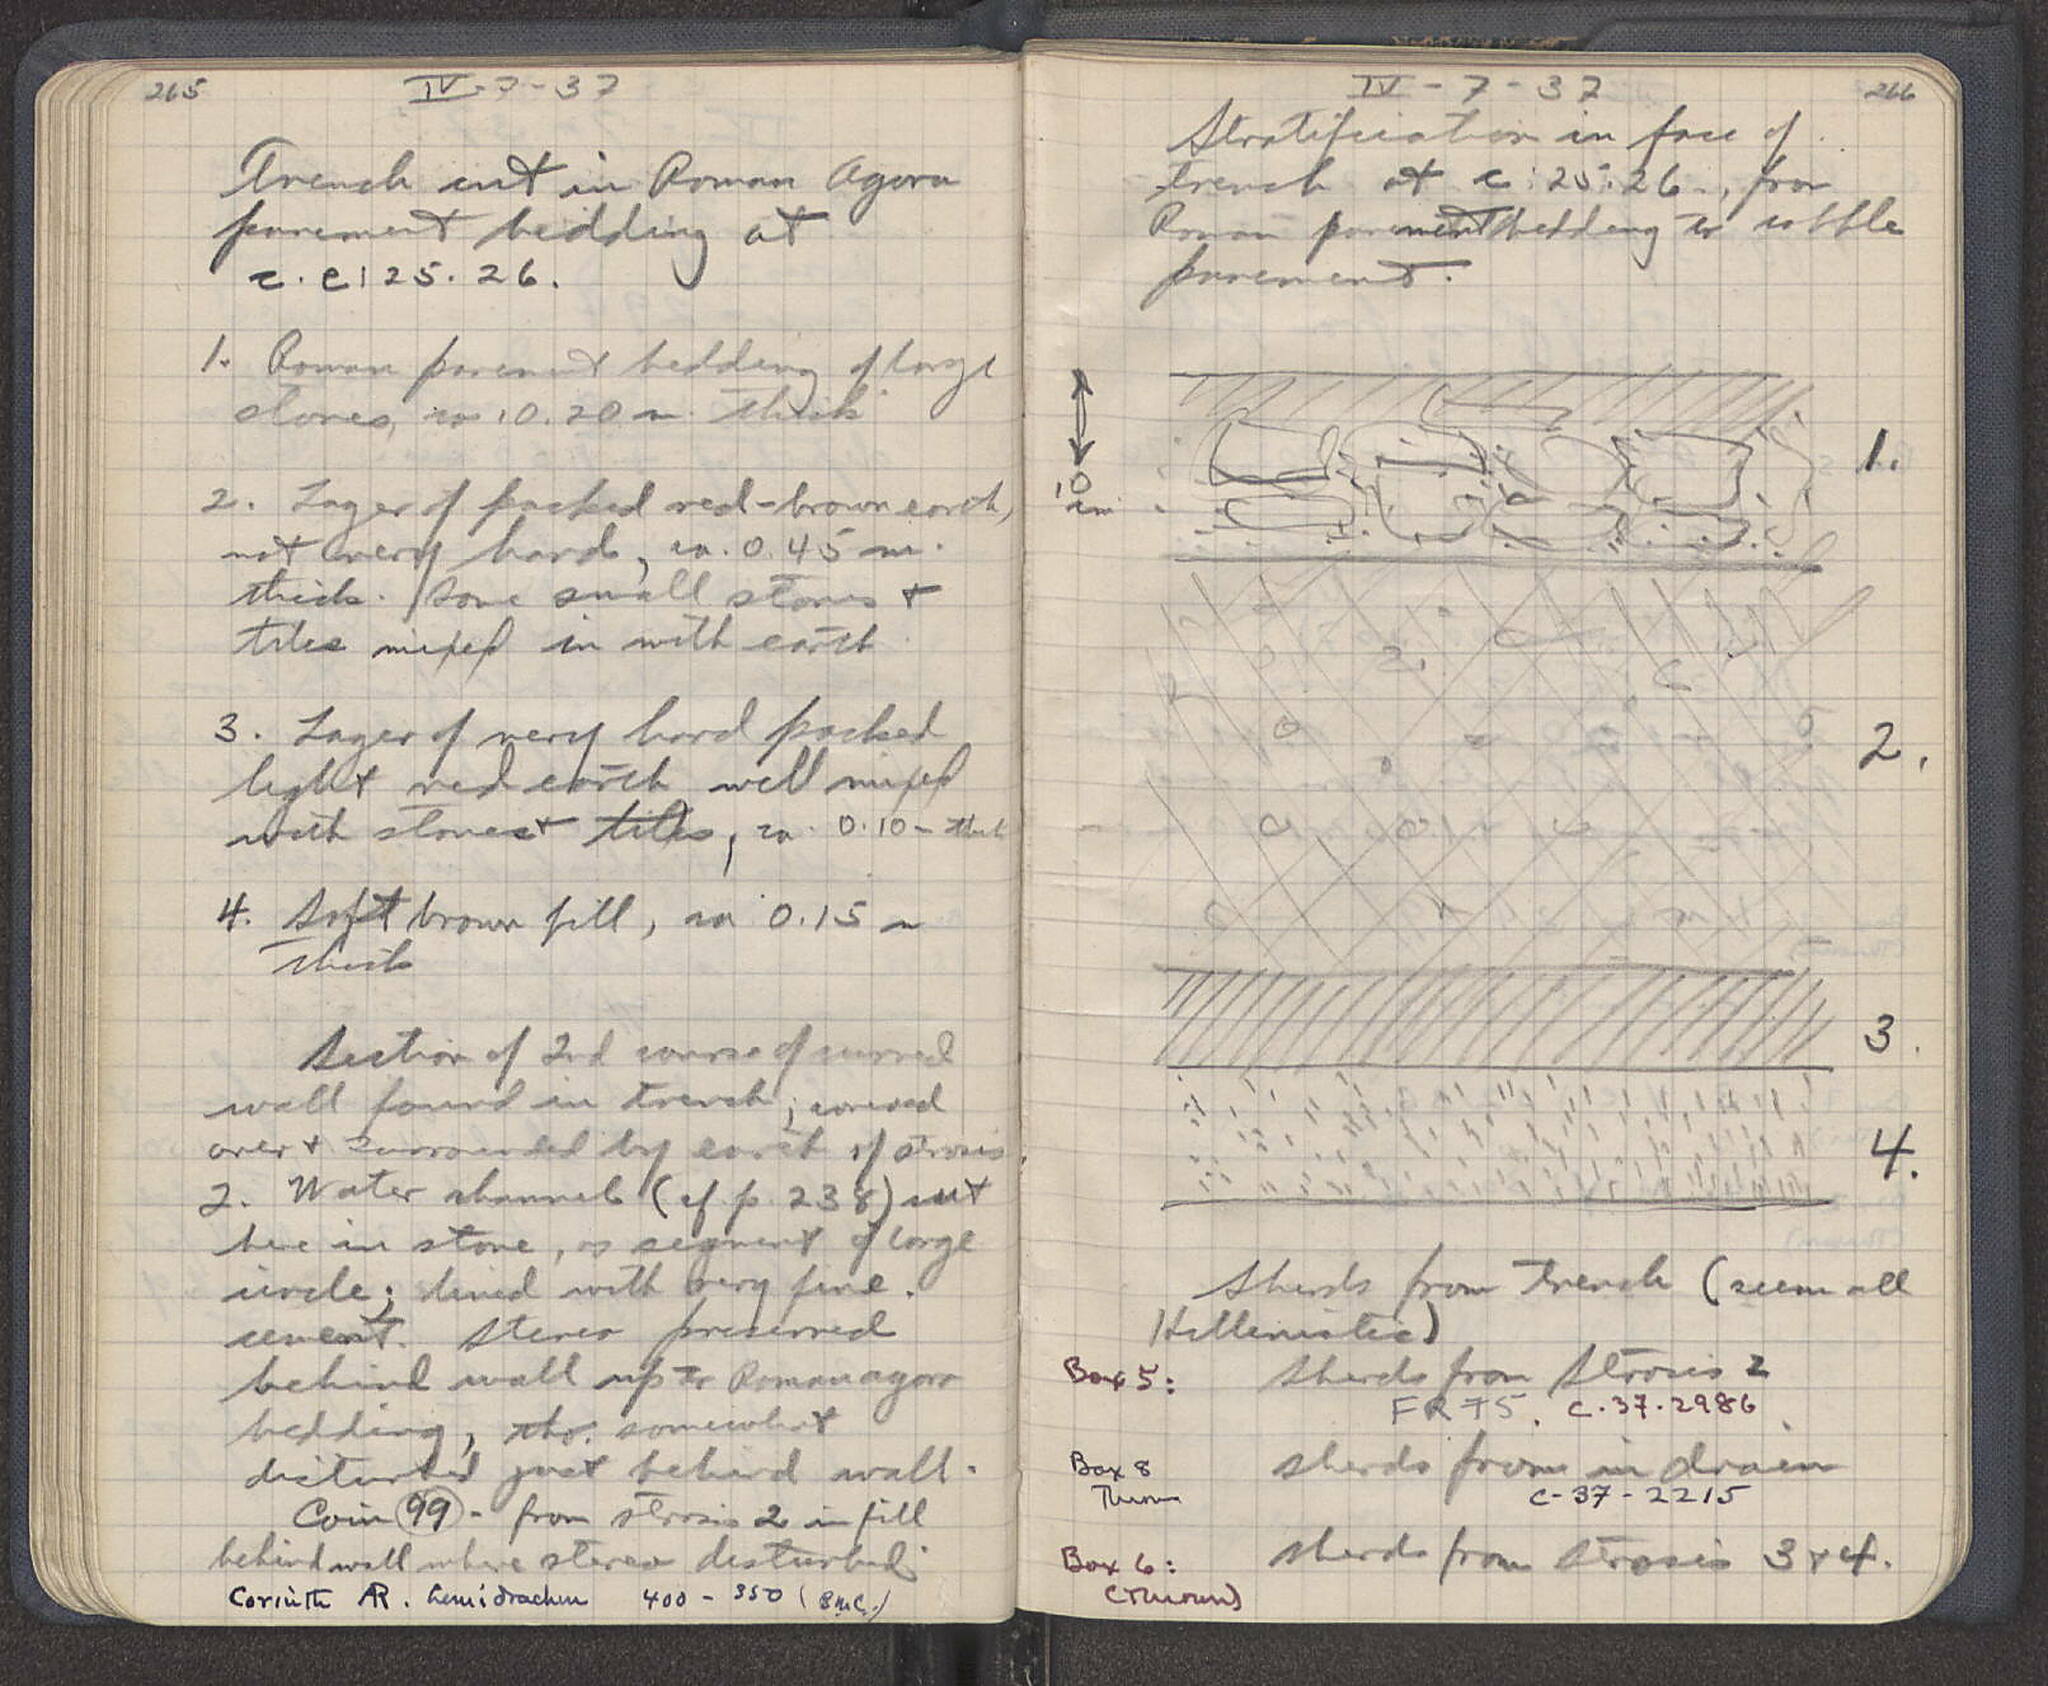 265
IV-7-37
Trench cut in Roman Agora
pavement bedding at
c. C:25.26.
1. Roman pavement bedding of large
stones, ca. 0.20 m. thick
2. Layer of packed red-brown earth,
not very hard, ca. 0.45 m.
thick. Some small stones +
tiles mixed in with earth
3. Layer of very hard packed
light red earth well mixed
with stones + tiles, ca. 0.10 m thick
4. Soft brown fill, ca 0.15 m
thick
Section of 2nd course of curved
wall found in trench; covered
over + surrounded by earth of strosis
2. Water channel (cf. p. 238) cut
here in stone, as segment of large
circle; lined with very fine
cement. Stereo preserved
behind wall up to Roman agora
bedding, tho. somewhat
disturbed just behind wall.
Coin 99 - from strosis 2 in fill
behind wall where stereo disturbed.
Corinth AR. hemidrachm 400-350 (BMC.)
IV-7-37
266
Stratification in face of
trench at C:25.26., from
Roman pavement bedding to cobble
pavement.
10
cm
1.
2.
3.
4.
Sherds from trench (seem all
Hellenistic)
Box 5: Sherds from Strosis 2
FR 75. C-37-2986
Box 8 sherds from in drain
Thrown C-37-2215
Box 6: sherds from strosis 3 + 4.
(Thrown)